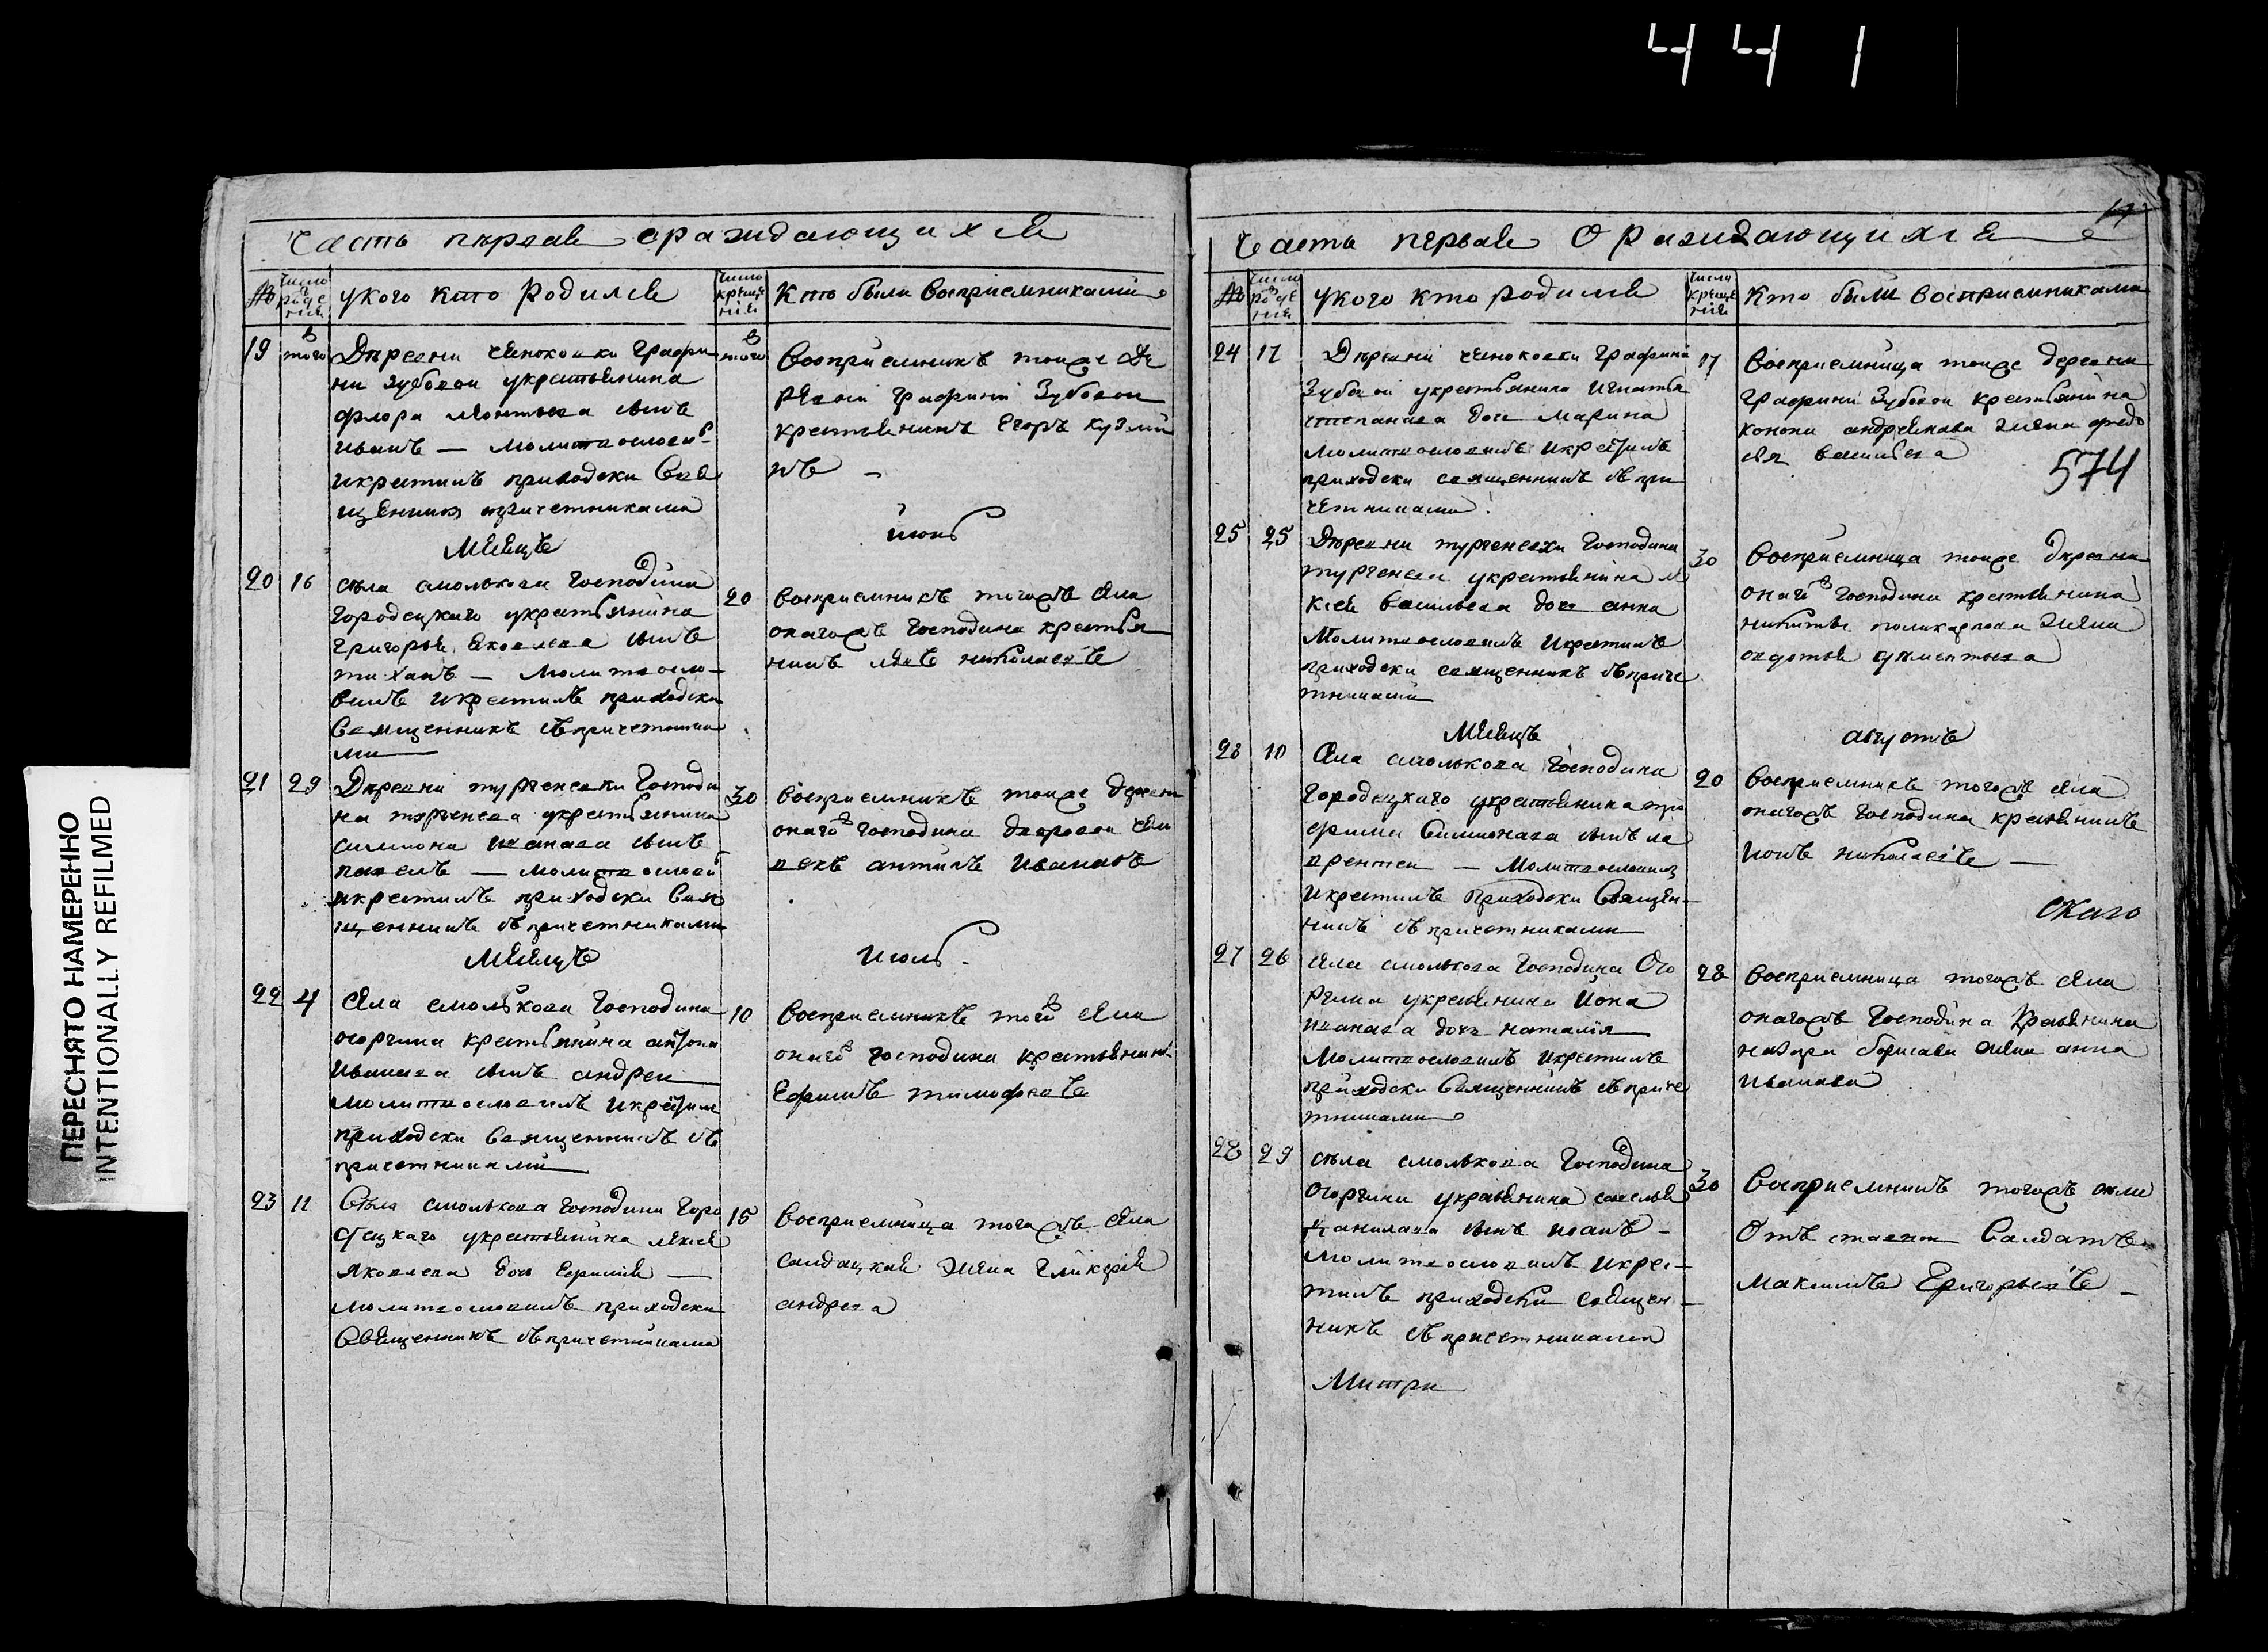 441
ПЕРЕСНЯТО НАМЕРЕННО
INTENTIONALLY REFILMED
Часть первая ораждающихся
№
число рождения
укого кто родился
число крещения
Кто были восприемниками
19
того
Деревни ченоковки графи
ни зубовои укрестьянина
флора леонтьева сынъ
иванъ — молитвословил
икрестилъ приходски Свя
щенникъ спричетниками
того
Восприемникъ тоиже де
ревни графини Зубовои
крестьянинъ Егоръ кузми
нъ —
Месяцъ
июнь
20
16
села смолькова господина
городецкаго укрестьянина
григорья яковлева сынъ
тиханъ — молитвосло-
вилъ икрестилъ приходски
Священникъ съпричетника
ми
20
восприемникъ тогожъ села
онагожъ господина крестья
нинъ николаевъ
21
29
Деревни тургеневки Господи
на тургенева укрестьянина
симиона иванава сынъ
павелъ — молитвослови
икрестилъ приходски Свя
щенникъ съпричетниками
30
восприемникъ тоиже деревни
онаго господина дворовои чело
векъ антипъ ивановъ
Месяцъ
июль
22
4
села смолькова господина
огоргина крестьянина антона
иванава сынъ андреи
молитвословилъ икрестил
приходски Священникъ съ
причетниками
10
восприемникъ того села
онаго господина крестьянинъ
Ефимъ тимофеевъ
23
11
Села смолькова господина горо
децкаго укрестьянина алексея
яковлева дочь
молитвословилъ приходски
Священникъ съпричетниками
15
восприемница тогожъ села
салдацкая жена гликерия
андреева
17
Часть первая Оражидающихся
№
число рождения
укого кто родился
число крещения
Кто были восприемниками
24
17
Деревни ченоковки графини
Зубовои укрестьянина игнатья
степанава дочь марина
молитвословилъ икрестилъ
приходски священникъ съпри
четниками
17
восприемница тоиже деревни
графини Зубовои крестьянина
конона андреянава жена федо
сья васильева
574
25
25
Деревни тургеневки Господина
тургенева укрестьянина
васильева дочь анна
Молитвословилъ Икрестилъ
приходски священникъ съприче
тниками
30
восприемница тоиже деревни
онаго господина крестьянина
никиты поликарпова жена
Месяцъ
августъ
28
10
села смолькова Господина
городецкаго укрестьянина тро
фима Симионава сынъ ла
врентеи — Молитвословилъ
икрестилъ приходски Священ-
никъ съпричетниками
20
восприемникъ тогожъ села
онагожъ господина крестьянинъ
николаевъ —
27
26
села смолькова Господина Ого
ргина укрестьянина иона
иванава дочь наталия
молитвословилъ икрестилъ
приходски Священникъ съприче
тниками
28
восприемница тогожъ села
онагожъ Господина Крестьянина
назара борисава жена анна
иванава
28
29
села смолькова Господина
Огоргина укрестьянина савелья
данилава сынъ иванъ -
молитвословилъ икрес-
тилъ приходски священ-
никъ съпричетниками
30
восприемникъ тогожъ села
Отъставнои Салдатъ
максимъ Григорьевъ